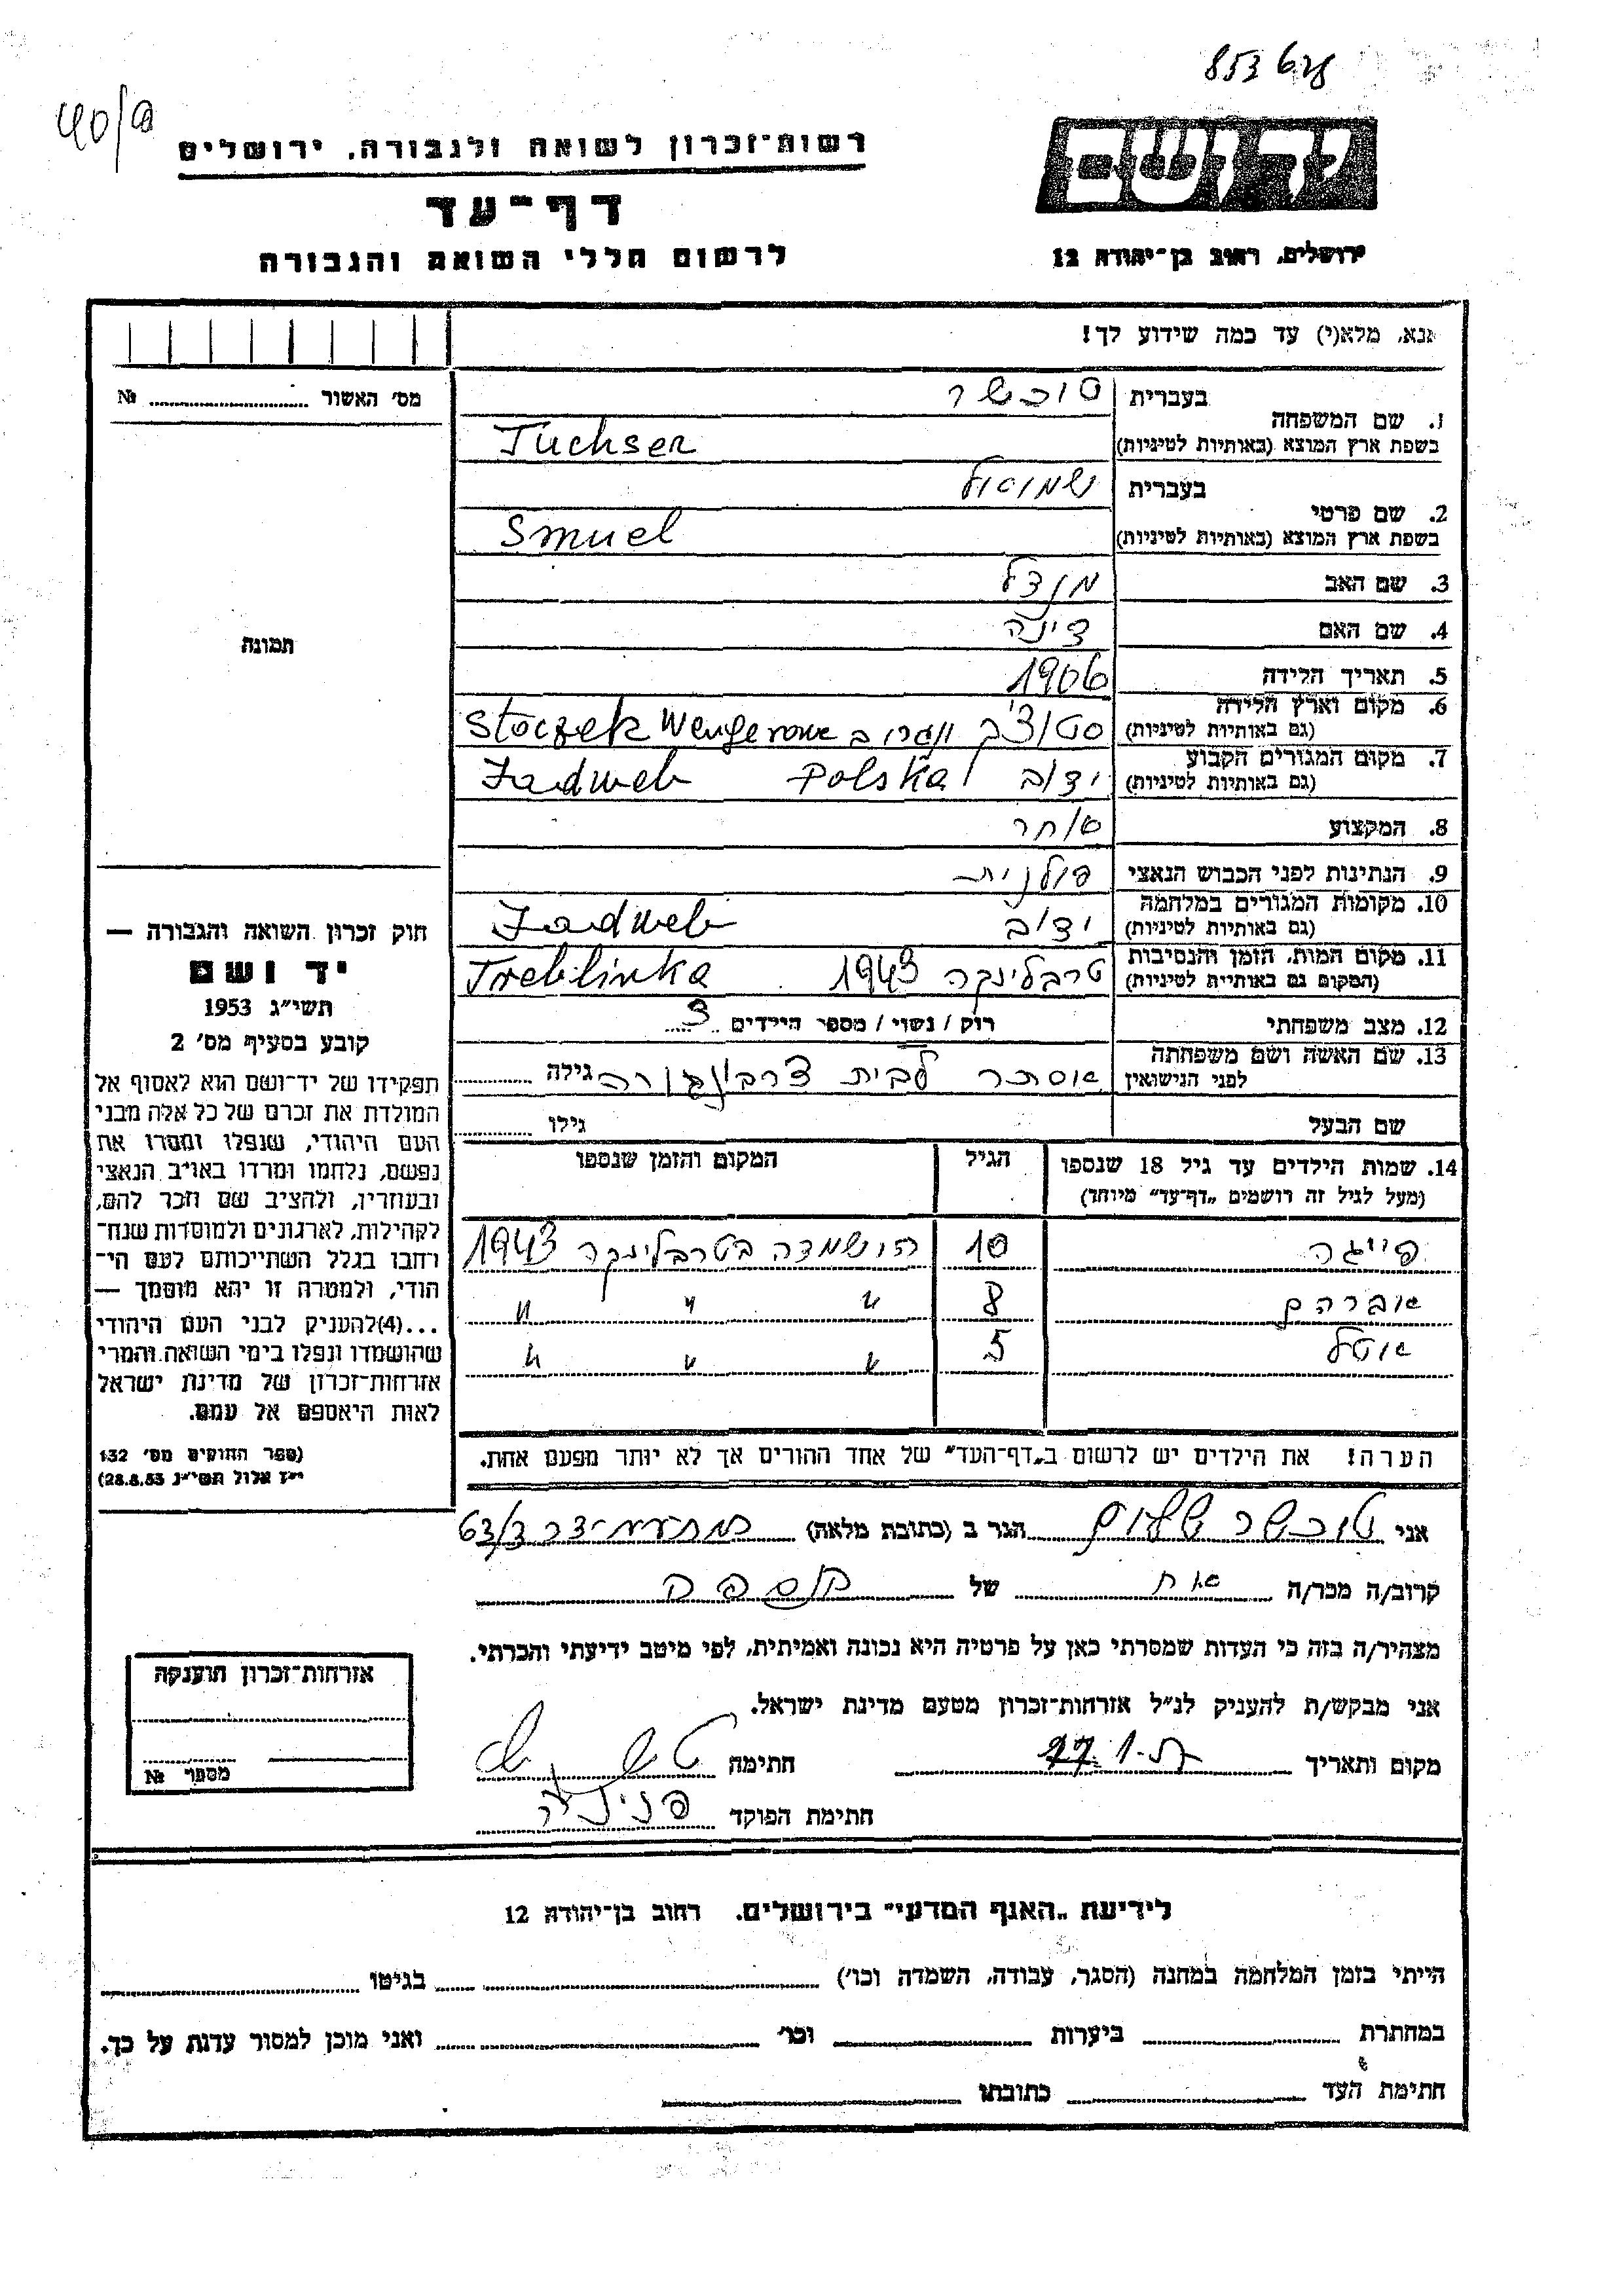 853 628
40/9
יד ושם
ירושלים, רחוב בן־יהודה 12
רשות־זכרון לשואה ולגבורה, ירושלים
דף־עד
לרשום חללי השואה והגבורה
אנא, מלא(י) עד כמה שידוע לך!
מס' האשור № 
1. שם המשפחה
בעברית טוכשר
בשפת ארץ המוצא (באותיות לטיניות) Tuchser
2. שם פרטי
בעברית שמואל
בשפת ארץ המוצא (באותיות לטיניות) Smuel
3. שם האב מנדל
4. שם האם דינה
5. תאריך הלידה 1906
6. מקום וארץ הלידה
(גם באותיות לטיניות) סטוצ'ק ונגרוב Stoczek Wengerowe
7. מקום המגורים הקבוע
(גם באותיות לטיניות) ידוב Polska Jadweb
8. המקצוע סוחר
9. הנתינות לפני הכבוש הנאצי פולנית
10. מקומות המגורים במלחמה
(גם באותיות לטיניות) ידוב Jadweb
11. מקום המות, הזמן והנסיבות
(המקום גם באותיות לטיניות) טרבלינקה 1943 Treblinka
12. מצב משפחתי רוק / נשוי / מספר הילדים 3
13. שם האשה ושם משפחתה
לפני הנישואין אסתר לבית גילה
שם הבעל גילו
14. שמות הילדים עד גיל 18 שנספו
(מעל לגיל זה רושמים „דף־עד" מיוחד)
הגיל
המקום והזמן שנספו
פייגה 10 הושמדה בטרבלינקה 1943
אברהם 8 " " "
אטל 5 " " "
הערה! את הילדים יש לרשום ב„דף־העד" של אחד ההורים אך לא יותר מפעם אחת.
תמונה
חוק זכרון השואה והגבורה —
יד ושם
תשי"ג 1953
קובע בסעיף מס' 2
תפקידו של יד־ושם הוא לאסוף אל
המולדת את זכרם של כל אלה מבני
העם היהודי, שנפלו ומסרו את
נפשם, נלחמו ומרדו באויב הנאצי
ובעוזריו, ולהציב שם וזכר להם,
לקהילות, לארגונים ולמוסדות שנח־
רחבו בגלל השתייכותם לעם הי־
הודי, ולמטרה זו יהא מוסמך —
...(4)להעניק לבני העם היהודי
שהושמדו ונפלו בימי השואה והמרי
אזרחות־זכרון של מדינת ישראל
לאות היאספם אל עמם.
(ספר החוקים מס' 132
י"ז אלול תשי"ג 28.8.53)
אני טוכשר שלום הגר ב (כתובת מלאה) 63/3
קרוב/ה מכר/ה אח של הנספה
מצהיר/ה בזה כי העדות שמסרתי כאן על פרטיה היא נכונה ואמיתית, לפי מיטב ידיעתי והכרתי.
אני מבקש/ת להעניק לנ"ל אזרחות־זכרון מטעם מדינת ישראל.
מקום ותאריך חתימה
חתימת הפוקד
אזרחות־זכרון תוענקה
מספר №
לידיעת „האגף המדעי" בירושלים. רחוב בן־יהודה 12
הייתי בזמן המלחמה במחנה (הסגר, עבודה, השמדה וכו') בגיטו
במחתרת ביערות וכו' ואני מוכן למסור עדות על כך.
חתימת העד כתובתו